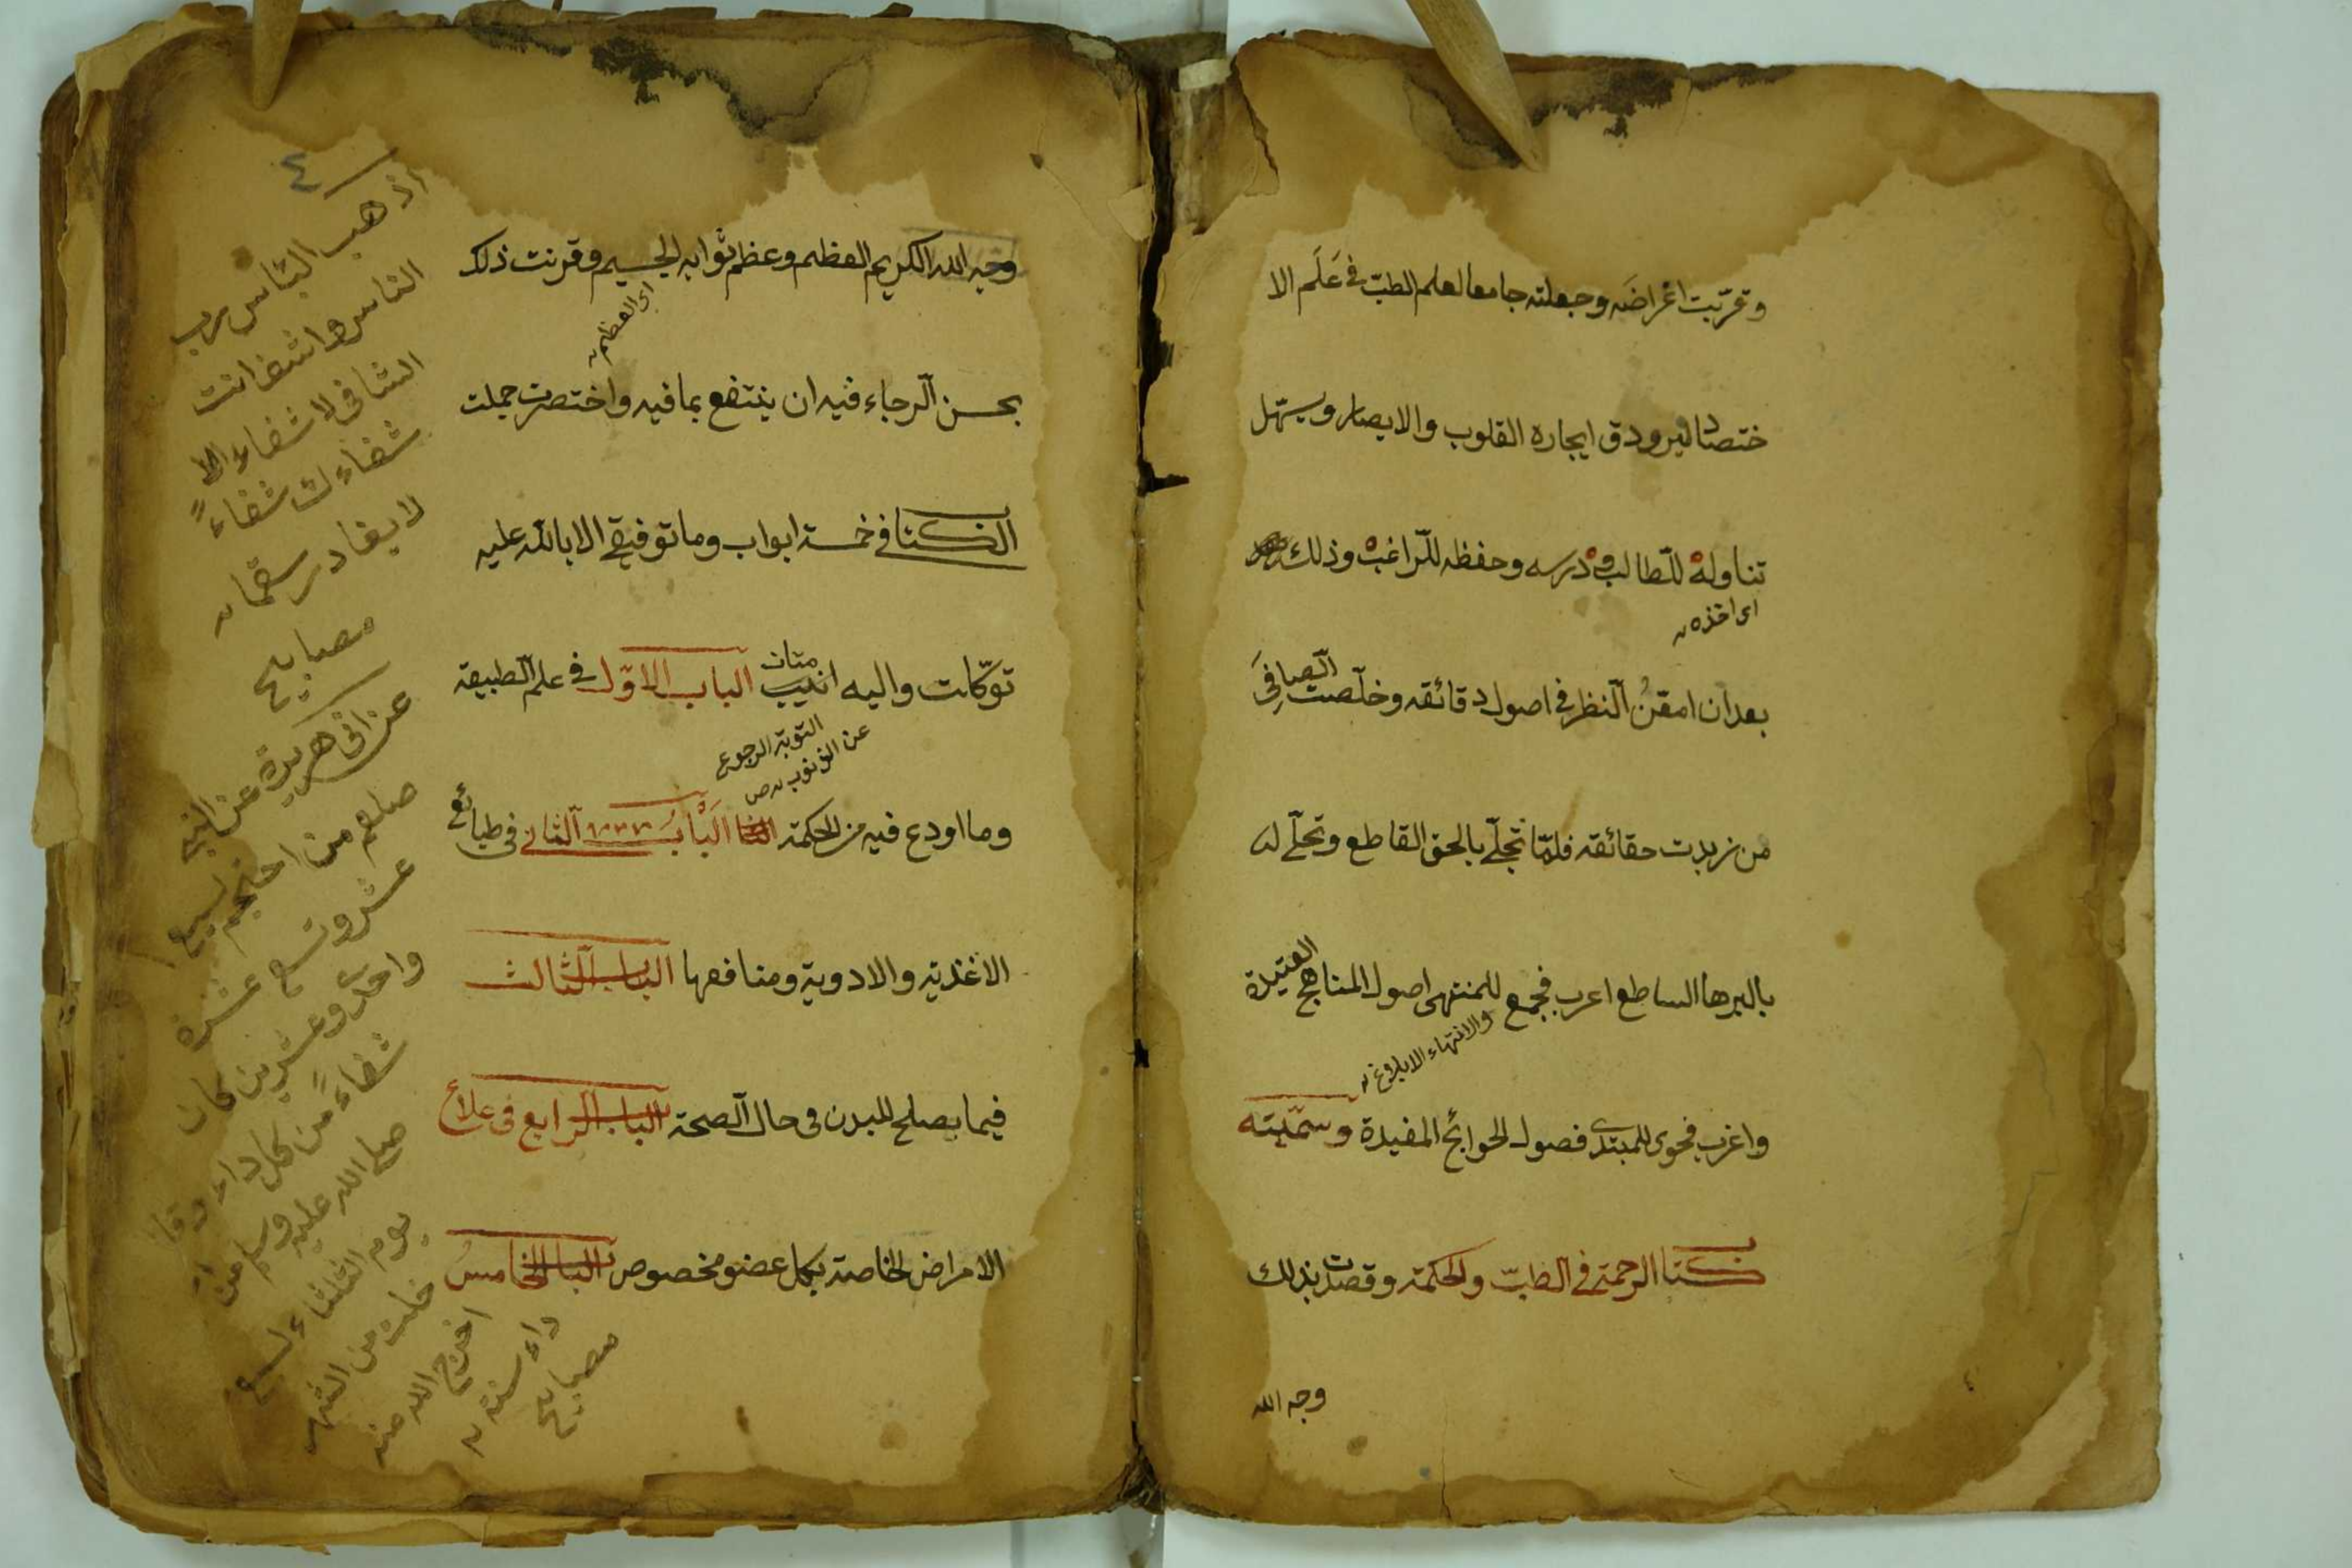 وقربت اغراضه وجعلته جامعا لعلم الطبّ في عَلَم الا
ختصار ليرودق ايجازه القلوب والابصار ويسهل
تناوله للطالب ودرسه وحفظه للراغب وذلك
اى اخذه
بعد ان امقنُ النظر في اصول دقائقه وخلّصت الصافي
من زبدت حقائقه فلمّا تجلّے بالحق القاطع وتحلّے له
بالبرها الساطع اعرب فجمع للمنتهى اصول المناهج العتيدة
والانتهاء الابلوغ
واغرب فحوى للمبتدى فصول الحوائج المفيدة وسمّيته
كتنا الرحمة في الطبّ والحكمة وقصدت بذلك
وجه الله
٤
وجه الله الكريم العظيم وعظم ثوابه الجسيم وقرنت ذلك
اى العظيم
بحسن الرجاء فيه ان ينتفع بما فيه واختصرت جملت
الكتنا في خمسة ابواب وما توفيقے الا بالله عليه
توكّلت واليه انيب متاب الباب الاوّل في علم الطبيقة
التوبة الرجوع
عن الذنوب ص
وما اودع فيه من الحكمة البابُ الثاني في طبائع
الاغذية والادوية ومنافعها الباب الثالث
فيما يصلح للبدن في حال الصحة الباب الرابع في علاج
الامراض الخاصة بكل عضو مخصوص الباب الخامسُ
اذهب البأس رب
الناس واشف انت
الشافى لا شفاء الا
شفاءك شفاءً
لا يغادر سقما
مصابيح
عن ابى هريرة عن النبي
صلعم من احتجم لسبع
عشر وتسع عشرة
واحدى وعشرين كان
شفاءً من كل داء وقا
صلى الله عليه وسلم من
يوم الثلثاء لسبع
خلت من الشهر
اخرج الله منه
داء سنة
مصابيح